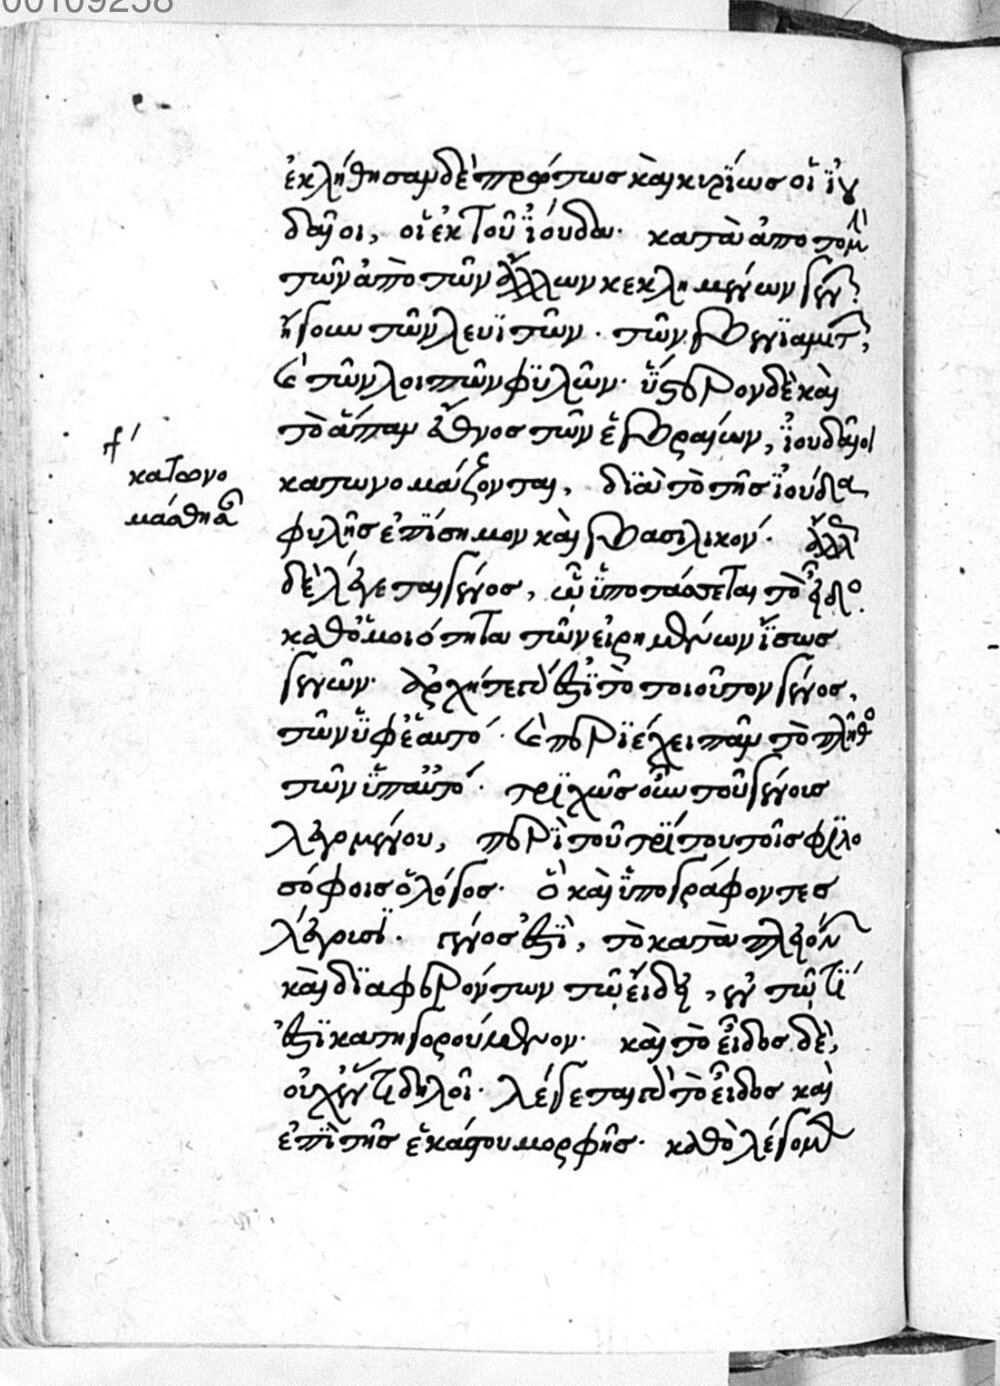 00109258
ἐκλήθησαν δὲ πρώτως καὶ κυρίως οἱ ἰου
δαῖοι, οἱ ἐκ τοῦ ἰούδα· κατὰ ἀποτομὴν
τῶν ἀπὸ τῶν ἄλλων κεκλημένων γενῶν
ἤγουν τῶν λευϊτῶν· τῶν βενϊαμιτῶν,
καὶ τῶν λοιπῶν φϋλῶν· ὕστερον δὲ καὶ
τὸ ἅπαν ἔθνος τῶν ἑβραίων, ἰουδαῖοι
κατωνομάζονται, διὰ τὸ τῆς ἰούδα
φυλῆς ἐπίσημον καὶ βασιλικόν· ἄλλο
δὲ λέγεται γένος, ὧ ὑποτάσσεται τὸ εἶδος
καθ' ὁμοιότητα τῶν εἰρημένων ἴσως
γενῶν· ἀρχή τε γάρ ἐστι τὸ τοιοῦτον γένος,
τῶν ὑφ' ἑαυτό· καὶ περιέχει πᾶν τὸ πλῆθος
τῶν ὑπ' αὐτό· τριχῶς οὖν τοῦ γένους
λεγομένου, περὶ τοῦ τρίτου τοῖς φιλο
σόφοις ὁ λόγος· ὃ καὶ ὑπογράφοντες
λέγουσι· γένος ἐστὶ, τὸ κατὰ πλειόνων
καὶ διαφερόντων τῶ εἴδει, ἐν τῶ τί
ἐστι κατηγορούμενον· καὶ τὸ εἶδος δὲ,
οὐχ ἕν τι δηλοῖ· λέγεται γὰρ τὸ εἶδος καὶ
ἐπὶ τῆς ἑκάστου μορφῆς· καθὸ λέγομεν
κατωνο
μάσθησαν